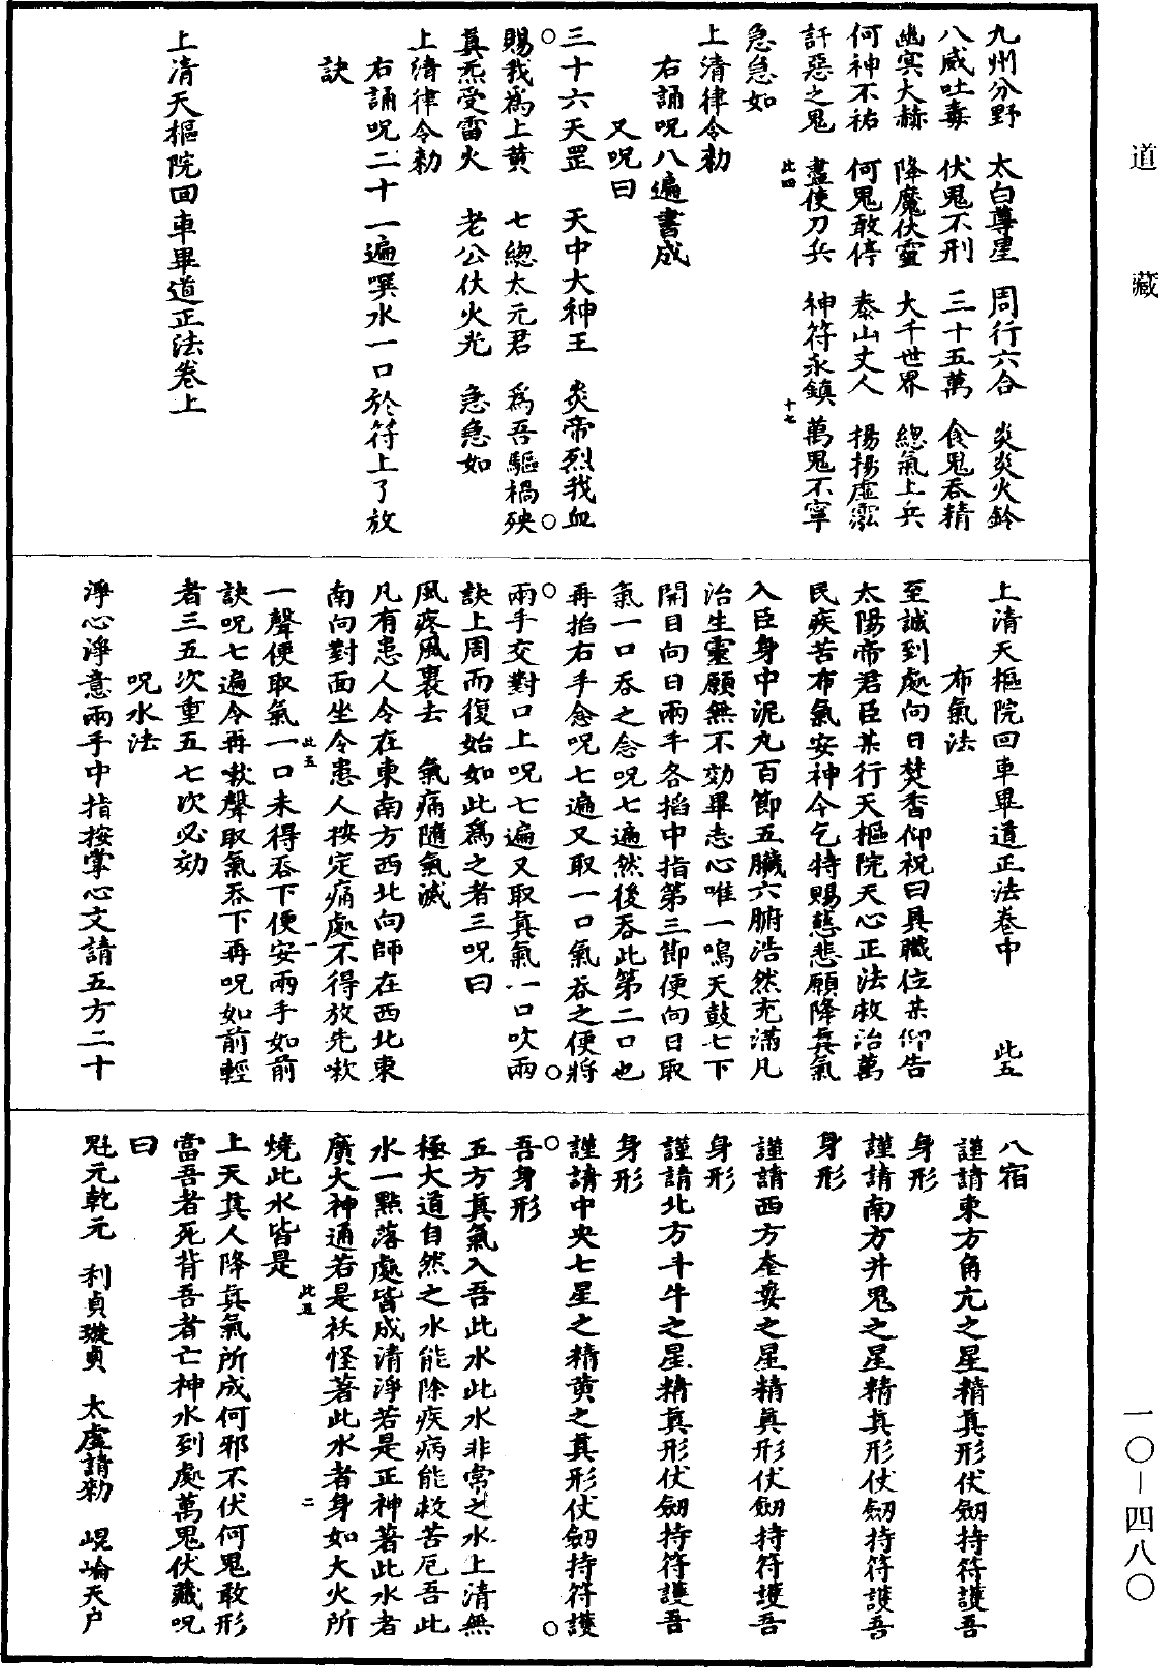 道藏
九州分野　太白尊星　周行六合　炎炎火鈴
八威吐毒　伏鬼不刑　三十五萬　食鬼吞精
幽冥大赫　降魔伏靈　大千世界　總氣上兵
何神不祐　何鬼敢停　泰山丈人　揚揚虛澐
訐惡之鬼　盡使刀兵　神符永鎮　萬鬼不寧
此四　十七
急急如
上清律令勑
右誦呪八遍書成
又呪曰
三十六天罡　天中大神王　炎帝烈我血
賜我爲上黄　七總太元君　爲吾驅禍殃
真炁受雷火　老公仗火光　急急如
上清律令勑
右誦呪二十一遍噀水一口於符上了放
訣
上清天樞院回車畢道正法卷上
上清天樞院回車畢道正法卷中　此五
布氣法
至誠到處向日焚香仰祝曰具職位某仰告
太陽帝君臣某行天樞院天心正法救治萬
民疾苦布氣安神今乞特賜慈悲願降真氣
入臣身中泥丸百節五臟六腑浩然充滿凡
治生靈願無不効畢志心唯一鳴天鼓七下
開目向日兩手各搯中指第三節便向日取
氣一口吞之念呪七遍然後吞此第二口也
再搯右手念呪七遍又取一口氣吞之便將
兩手交對口上呪七遍又取真氣一口吹兩
訣上周而復始如此爲之者三呪曰
風疼風裹去　氣痛隨氣滅
凡有患人令在東南方西北向師在西北東
南向對面坐令患人按定痛處不得放先嗽
一聲便取氣一口未得吞下便安兩手如前
此五　一
訣呪七遍令再嗽聲取氣吞下再呪如前輕
者三五次重五七次必効
呪水法
淨心淨意兩手中指按掌心文請五方二十
八宿
謹請東方角亢之星精真形仗劒持符護吾
身形
謹請南方井鬼之星精真形仗劒持符護吾
身形
謹請西方奎婁之星精真形仗劒持符護吾
身形
謹請北方斗牛之星精真形仗劒持符護吾
身形
謹請中央七星之精黄之真形仗劒持符護
吾身形
五方真氣入吾此水此水非常之水上清無
極大道自然之水能除疾病能救苦厄吾此
水一點落處皆成清淨若是正神著此水者
廣大神通若是祅怪著此水者身如大火所
此五　二
燒此水皆是
上天真人降真氣所成何邪不伏何鬼敢形
當吾者死背吾者亡神水到處萬鬼伏藏呪
曰
魁元乾元　利貞璇貞　太虛請勑　崐崙天户
一〇—四八〇